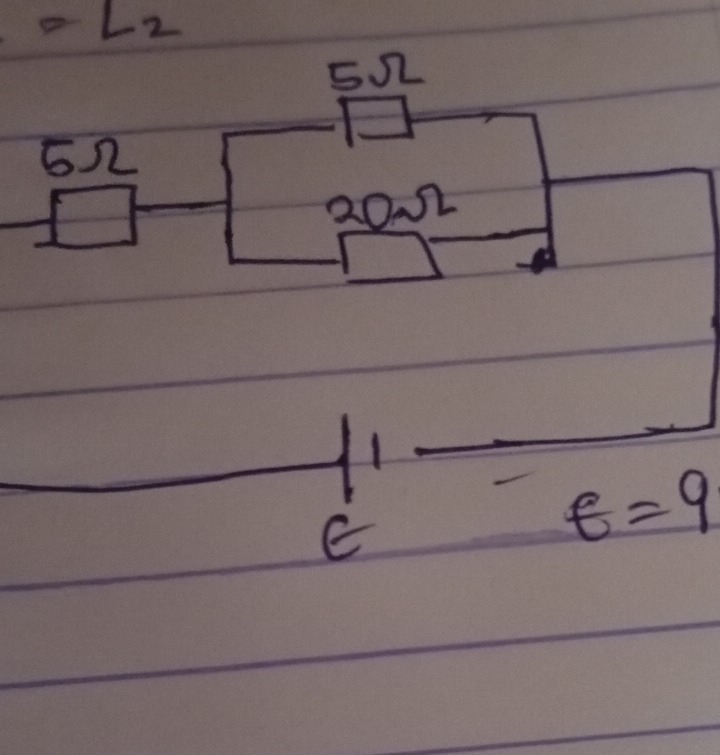 = L2
5Ω
5Ω
20Ω
E
E = 9